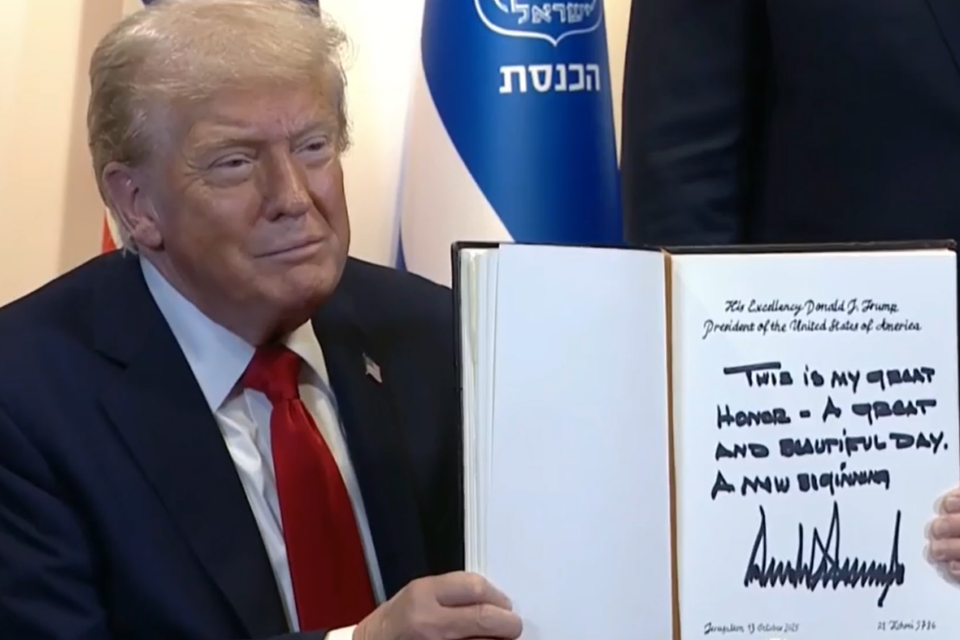 ישראל
הכנסת
His Excellency Donald J. Trump
President of the United States of America
THIS IS MY GREAT
HONOR - A GREAT
AND BEAUTIFUL DAY.
A NEW BIGINNING
Jerusalem, 13 October 2025
21 Tishrei 5786